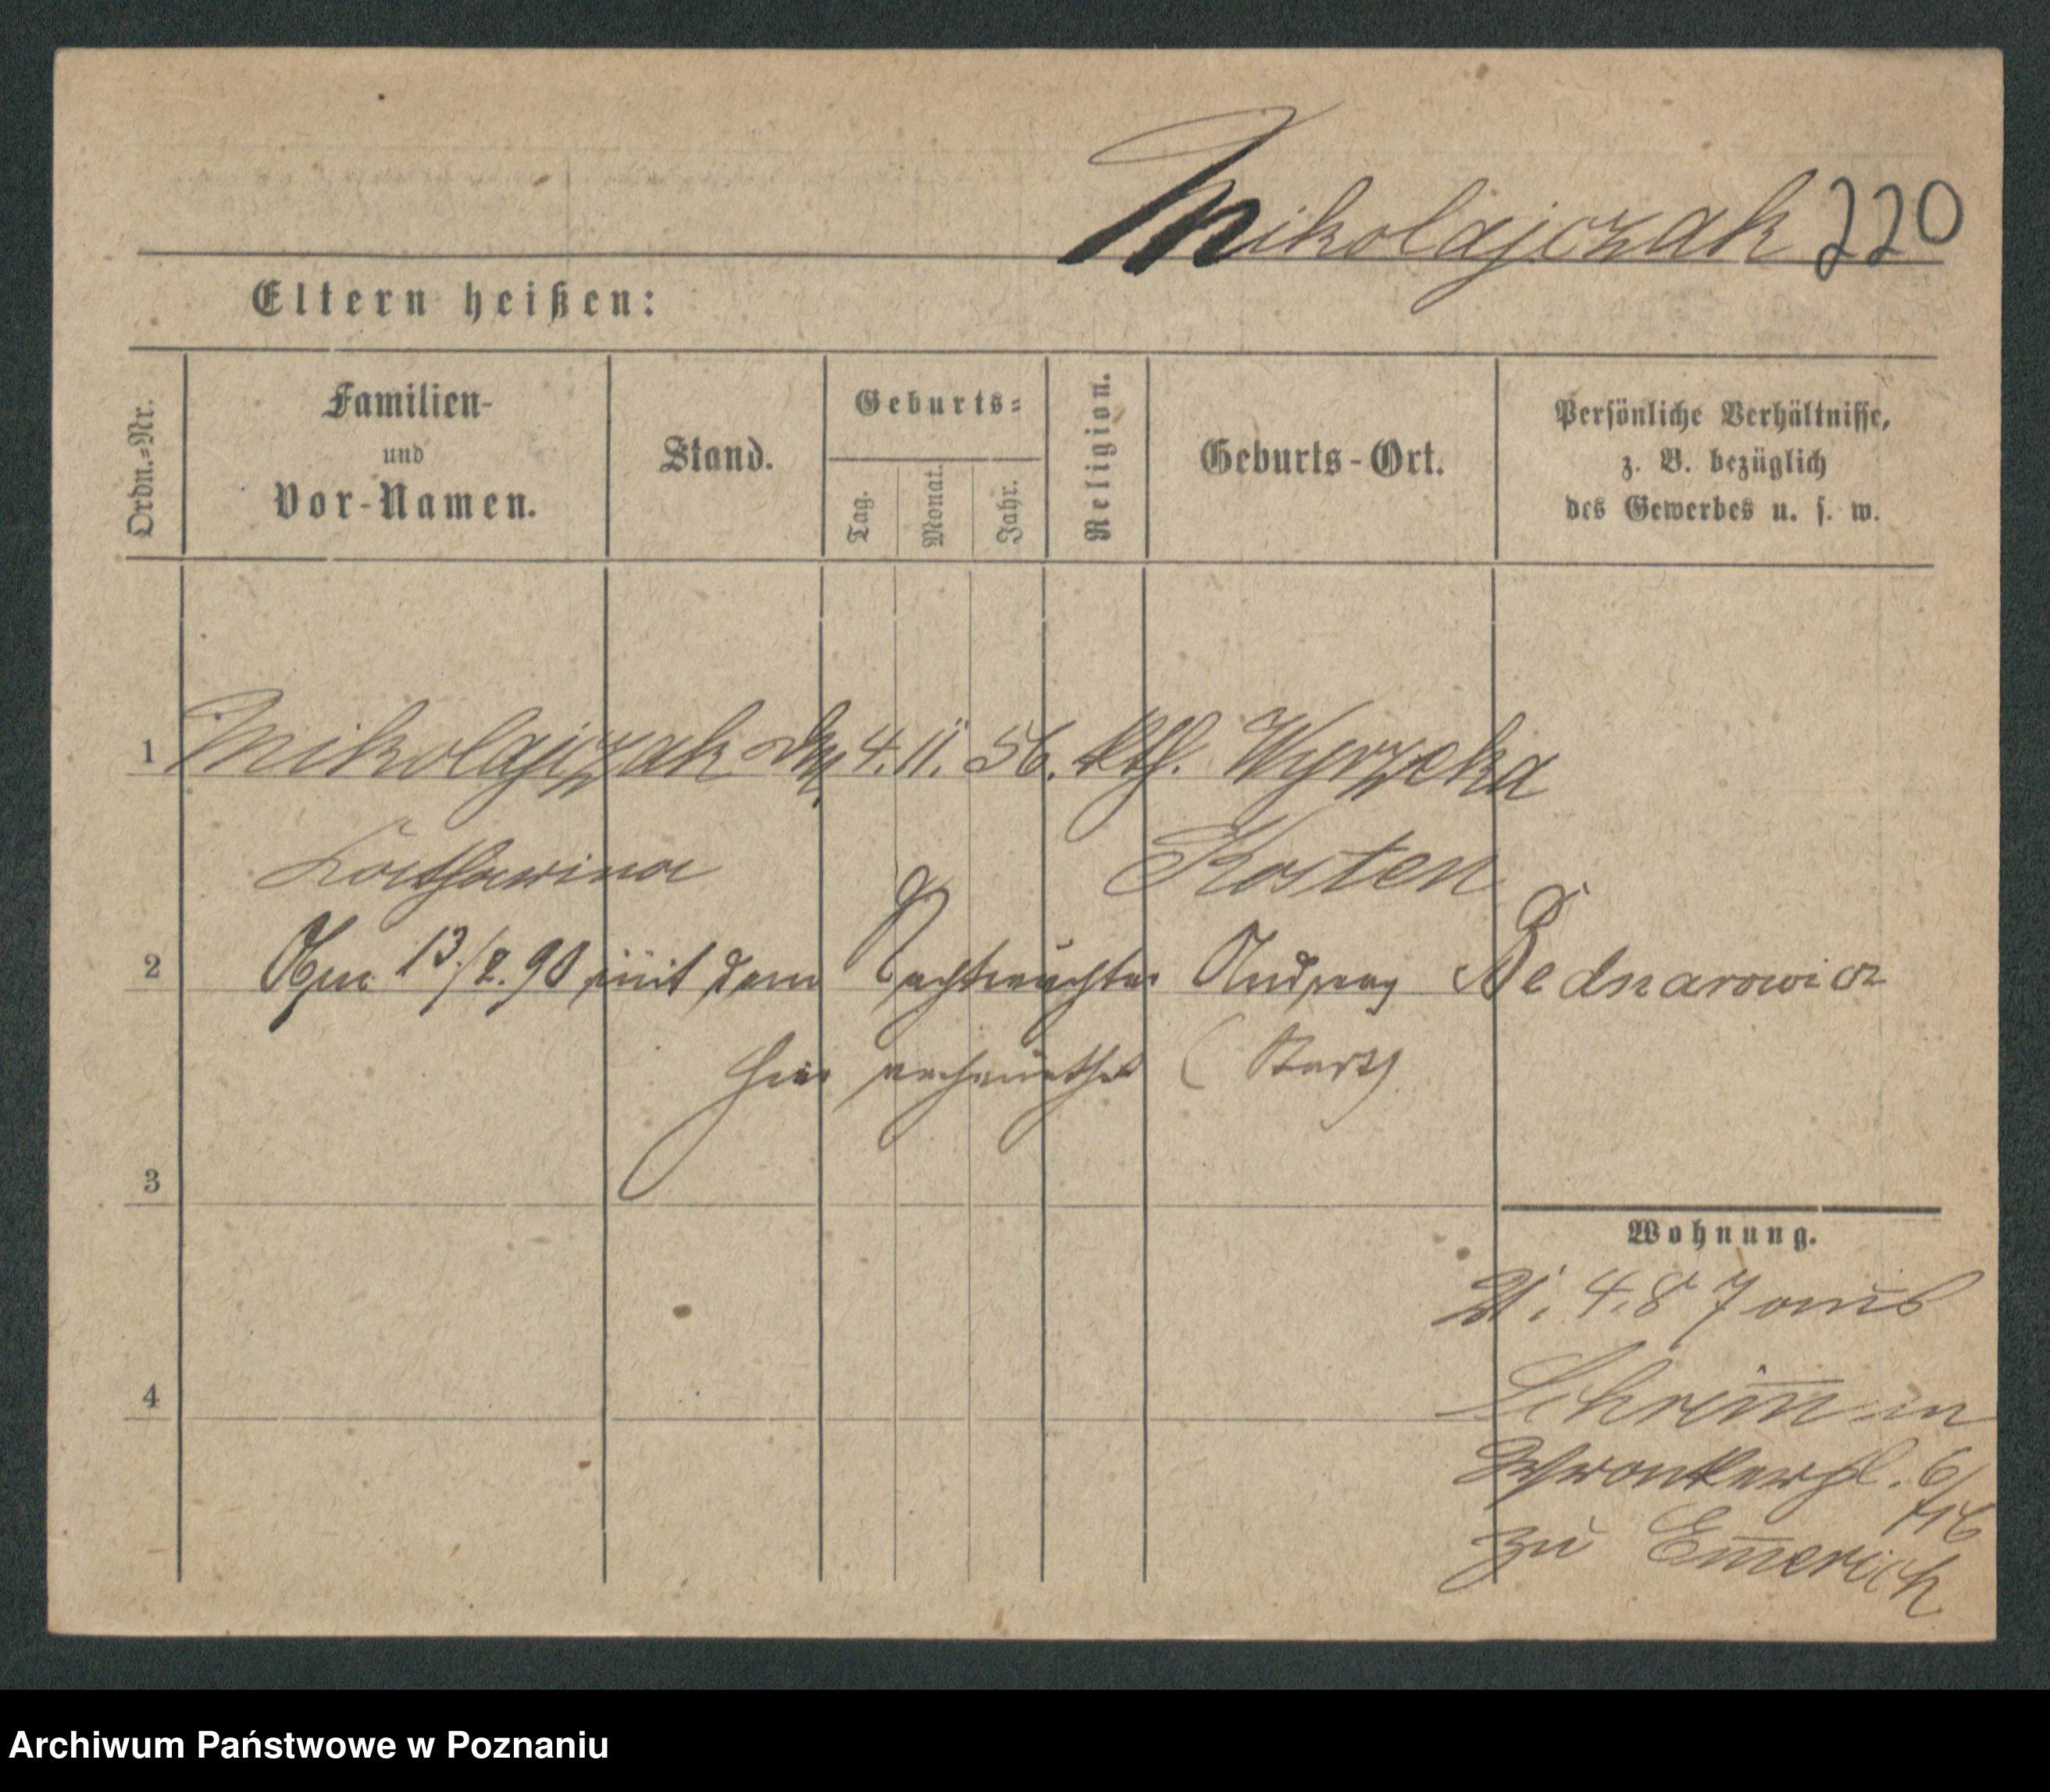 Mikolajczak 220
Eltern heißen:
Ordn.-Nr.
Familien-
und
Vor-Namen.
Stand.
Geburts-
Tag.
Monat.
Jahr.
Religion.
Geburts-Ort.
Persönliche Verhältnisse,
z. B. bezüglich
des Gewerbes u. s. w.
1 Mikolajczak 4. 11. 56. kth. Wyrzeka
Katharina Kosten
2 Am 13./2. 90 mit dem Nachtwächter Andreas Bednarowicz
hier verheirathet
3
Wohnung.
21. 4. 87 aus
Schrimm in
4
Wronkerpl. 6
zu Emerich
Archiwum Państwowe w Poznaniu